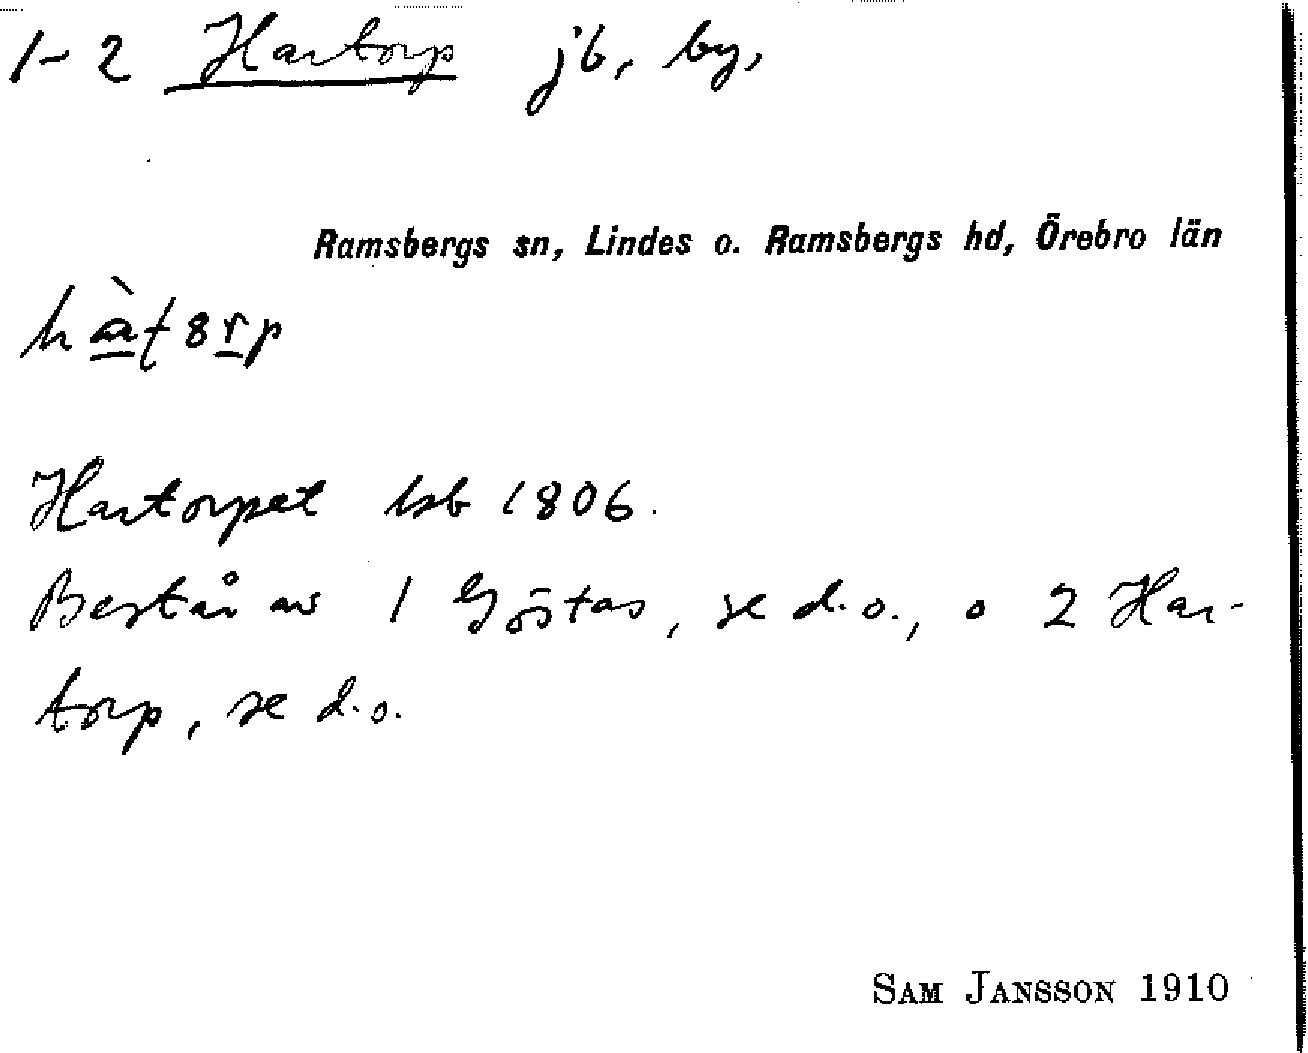 1-2 Hartorp jb, by,
Ramsbergs sn, Lindes o. Ramsbergs hd, Örebro län
hàt8rp
Hartorpet hsb 1806.
Består av 1 Göstas, se d.o., o 2 Har-
torp, se d.o.
SAM JANSSON 1910